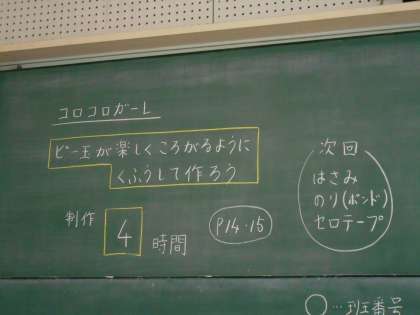 コロコロガーL
ビー玉が楽しくころがるように
くふうして作ろう
制作 4 時間
P14・15
次回
はさみ
のり(ボンド)
セロテープ
○…班番号